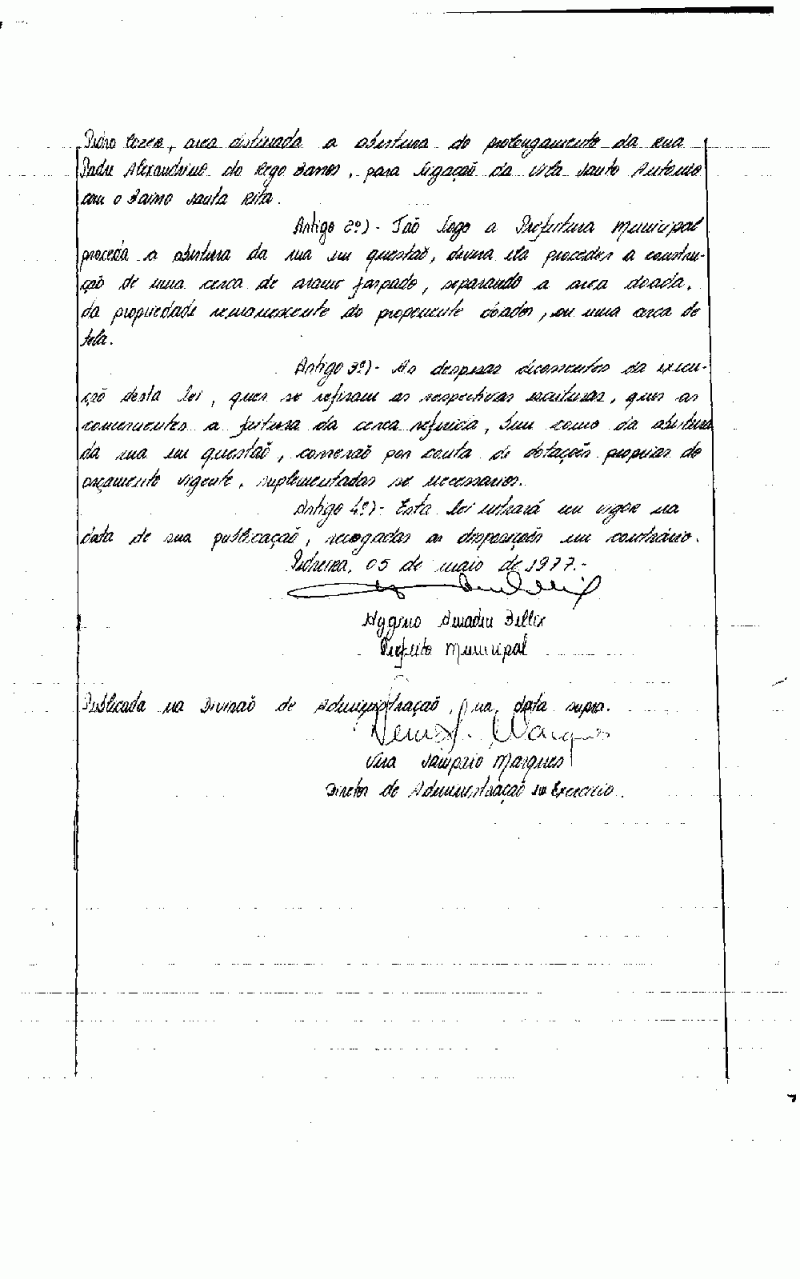 Pedro Cezer, area destinada a abertura do prolongamento da rua
Padre Alexandrino do Rego Barros, para ligação da Vila Santo Antonio
com o Bairro Santa Rita.
Artigo 2º)- Tão logo a Prefeitura Municipal
proceda a abertura da rua em questão, devera ela proceder a constru-
ção de uma cerca de arame farpado, separando a area doada,
da propriedade remanescente do proponente doador, ou uma cerca de
tela.
Artigo 3º)- As despesas decorrentes da execu-
ção desta lei, quer se refiram as respectivas escrituras, quer as
concernentes a feitura da cerca referida, bem como da abertura
da rua em questão, correrão por conta de dotações proprias do
orçamento vigente, suplementadas se necessario.
Artigo 4º)- Esta lei entrará em vigor na
data de sua publicação, revogadas as disposições em contrário.
Pedreira, 05 de maio de 1977.-
Hygino Amadeu Bellix
Prefeito Municipal
Publicada na Divisão de Administração, na data supra.
Vera Sampaio Marques
Diretor de Administração em Exercicio.